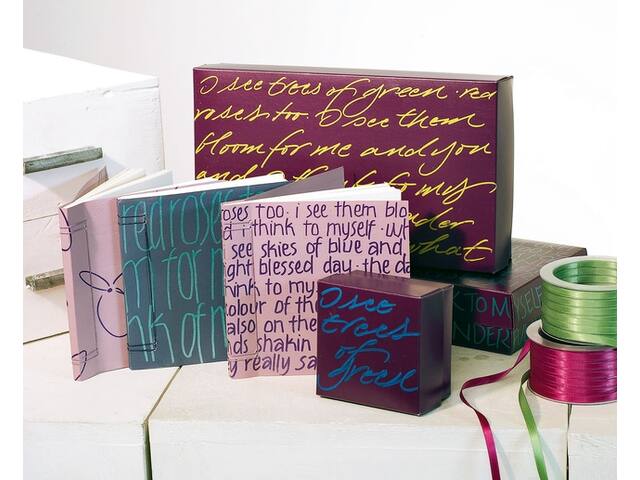 I see trees of green red
roses too. I see them
bloom for me and you
and
to my
what
red rose
m for m
nk of m
roses too. i see them blo
d i think to myself. wh
see skies of blue and
ght blessed day. the da
ink to my
colour of th
also on the
nds shakin
y really sa
I see
trees
of
green
K TO MYSELF
NDER